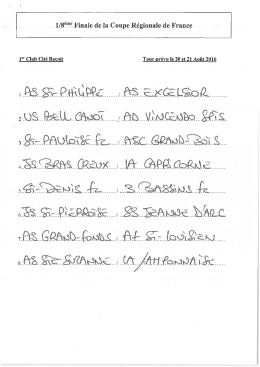 1/8ème Finale de la Coupe Régionale de France
1er Club Cité Reçoit Tour prévu le 20 et 21 Août 2016
: AS ST-PHILIPPE : AS EXCELSIOR
: US BELL CANOT : AD VINCENDO SPTS
: ST-PAULOISE FC : ASC GRAND-BOIS
: JS BRAS CREUX : LA CAPRICORNE
: ST-DENIS FC : 3 BASSINS FC
: JS ST-PIERROISE : SS JEANNE D'ARC
: AS GRAND-FONDS : AF ST-LOUISIEN
: AS STE SUZANNE : LA TAMPONNAISE